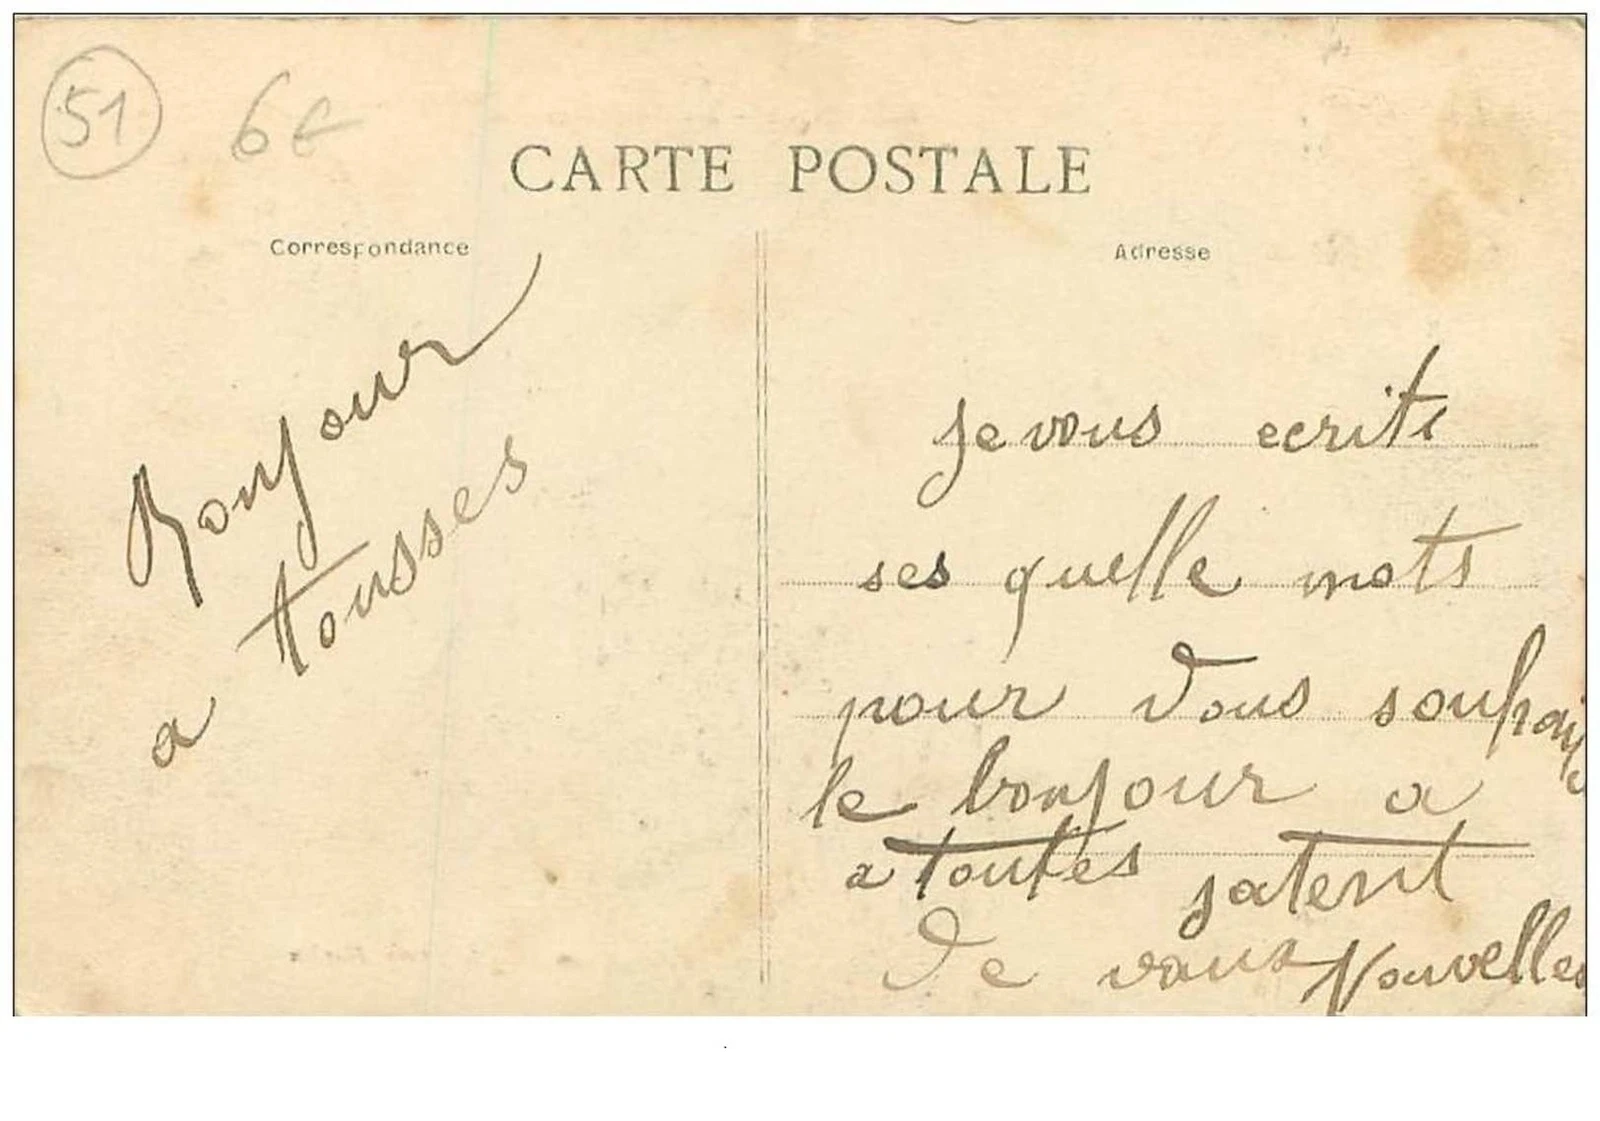 51 6€
CARTE POSTALE
Correspondance
Adresse
Bonjour
a tousses
je vous ecrite
ses quelle mots
pour vous souhaits
le bonjour a
a toutes jatent
de vous Nouvelles